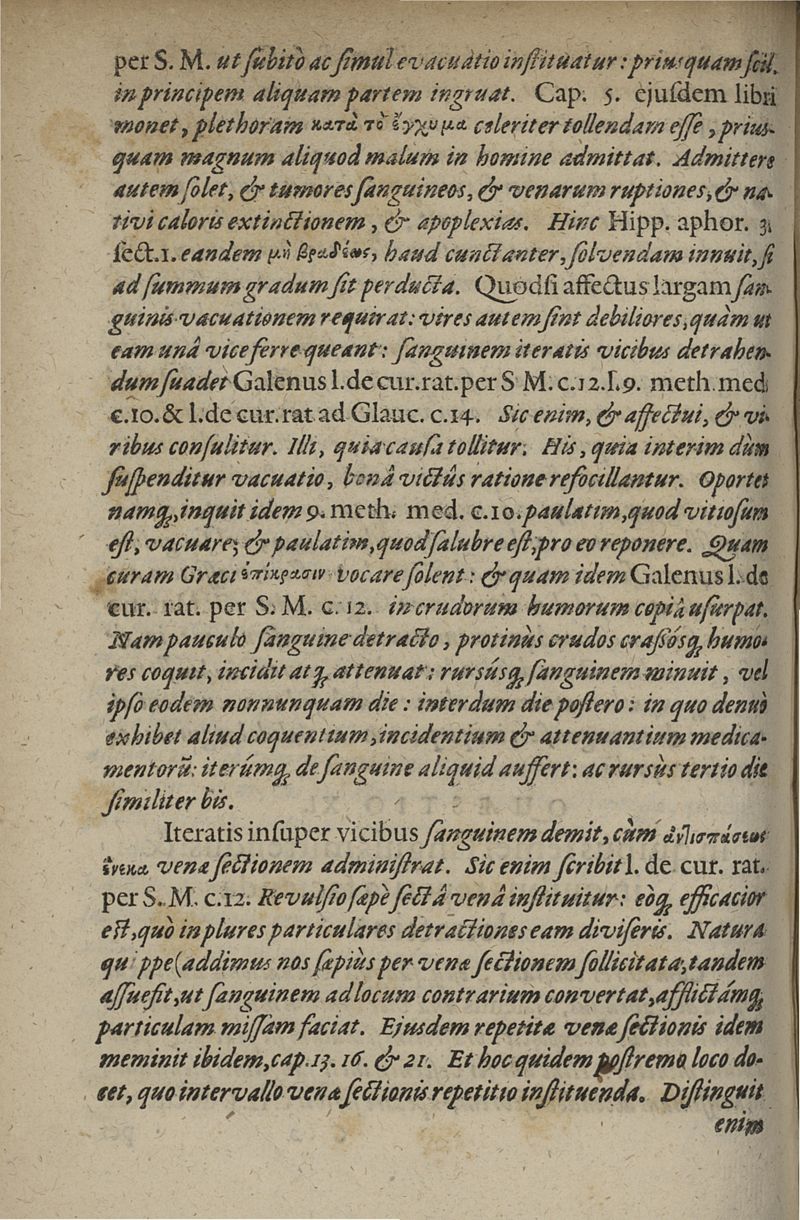 per S. M. ut ſubitò ac ſimul evacuatio inſtituatur: priusquam ſcil.
in principem aliquam partem ingruat. Cap. 5. ejuſdem libri
monet, plethoram κατὰ τὸ ἔγχυμα celeriter tollendam eſſe, prius-
quam magnum aliquod malum in homine admittat. Admittere
autem ſolet, & tumores ſanguineos, & venarum ruptiones, & na-
tivi caloris extinctionem, & apoplexias. Hinc Hipp. aphor. 3.
ſect.1. eandem μὴ βραδέως, haud cunctanter, ſolvendam innuit, ſi
ad ſummum gradum ſit perducta. Quodſi affectus largam ſan-
guinis vacuationem requirat: vires autem ſint debiliores, quàm ut
eam unâ vice ferre queant: ſanguinem iteratis vicibus detrahen-
dum ſuadet Galenus l. de cur. rat. per S M. c.12. l.9. meth. med.
c.10. & l. de cur. rat ad Glauc. c.14. Sic enim, & affectui, & vi-
ribus conſulitur. Illi, quia cauſa tollitur. His, quia interim dum
ſuſpenditur vacuatio, bonâ victûs ratione refocillantur. Oportet
namq́;, inquit idem 9. meth. med. c.10. paulatim, quod vitioſum
eſt, vacuare; & paulatim, quod ſalubre eſt, pro eo reponere. Quam
curam Græci ἐπίκρασιν vocare ſolent: & quam idem Galenus l. de
cur. rat. per S. M. c. 12. in crudorum humorum copiâ uſurpat.
Nam pauculo ſanguine detracto, protinùs crudos craſsósq́; humo-
res coquit, incidit atq́; attenuat: rursúsq́; ſanguinem minuit, vel
ipſo eodem nonnunquam die: interdum die poſtero: in quo denuò
exhibet aliud coquentium, incidentium & attenuantium medica-
mentorū: iterúmq́; de ſanguine aliquid auffert: ac rursùs tertio die
ſimiliter bis.
Iteratis inſuper vicibus ſanguinem demit, cùm ἀντισπάσεως
ἕνεκα venæ ſectionem adminiſtrat. Sic enim ſcribit l. de cur. rat.
per S. M. c.12. Revulſio ſæpè ſectâ venâ inſtituitur: eòq́; efficacior
eſt, quò in plures particulares detractiones eam diviſeris. Natura
quippe (addimus nos ſæpiùs per venæ ſectionem ſollicitata, tandem
aſſueſit, ut ſanguinem ad locum contrarium convertat, afflictámq́;
particulam miſſam faciat. Ejusdem repetitæ venæ ſectionis idem
meminit ibidem, cap. 13. 16. & 21. Et hoc quidem poſtremo loco do-
cet, quo intervallo venæ ſectionis repetitio inſtituenda. Diſtinguit
enim